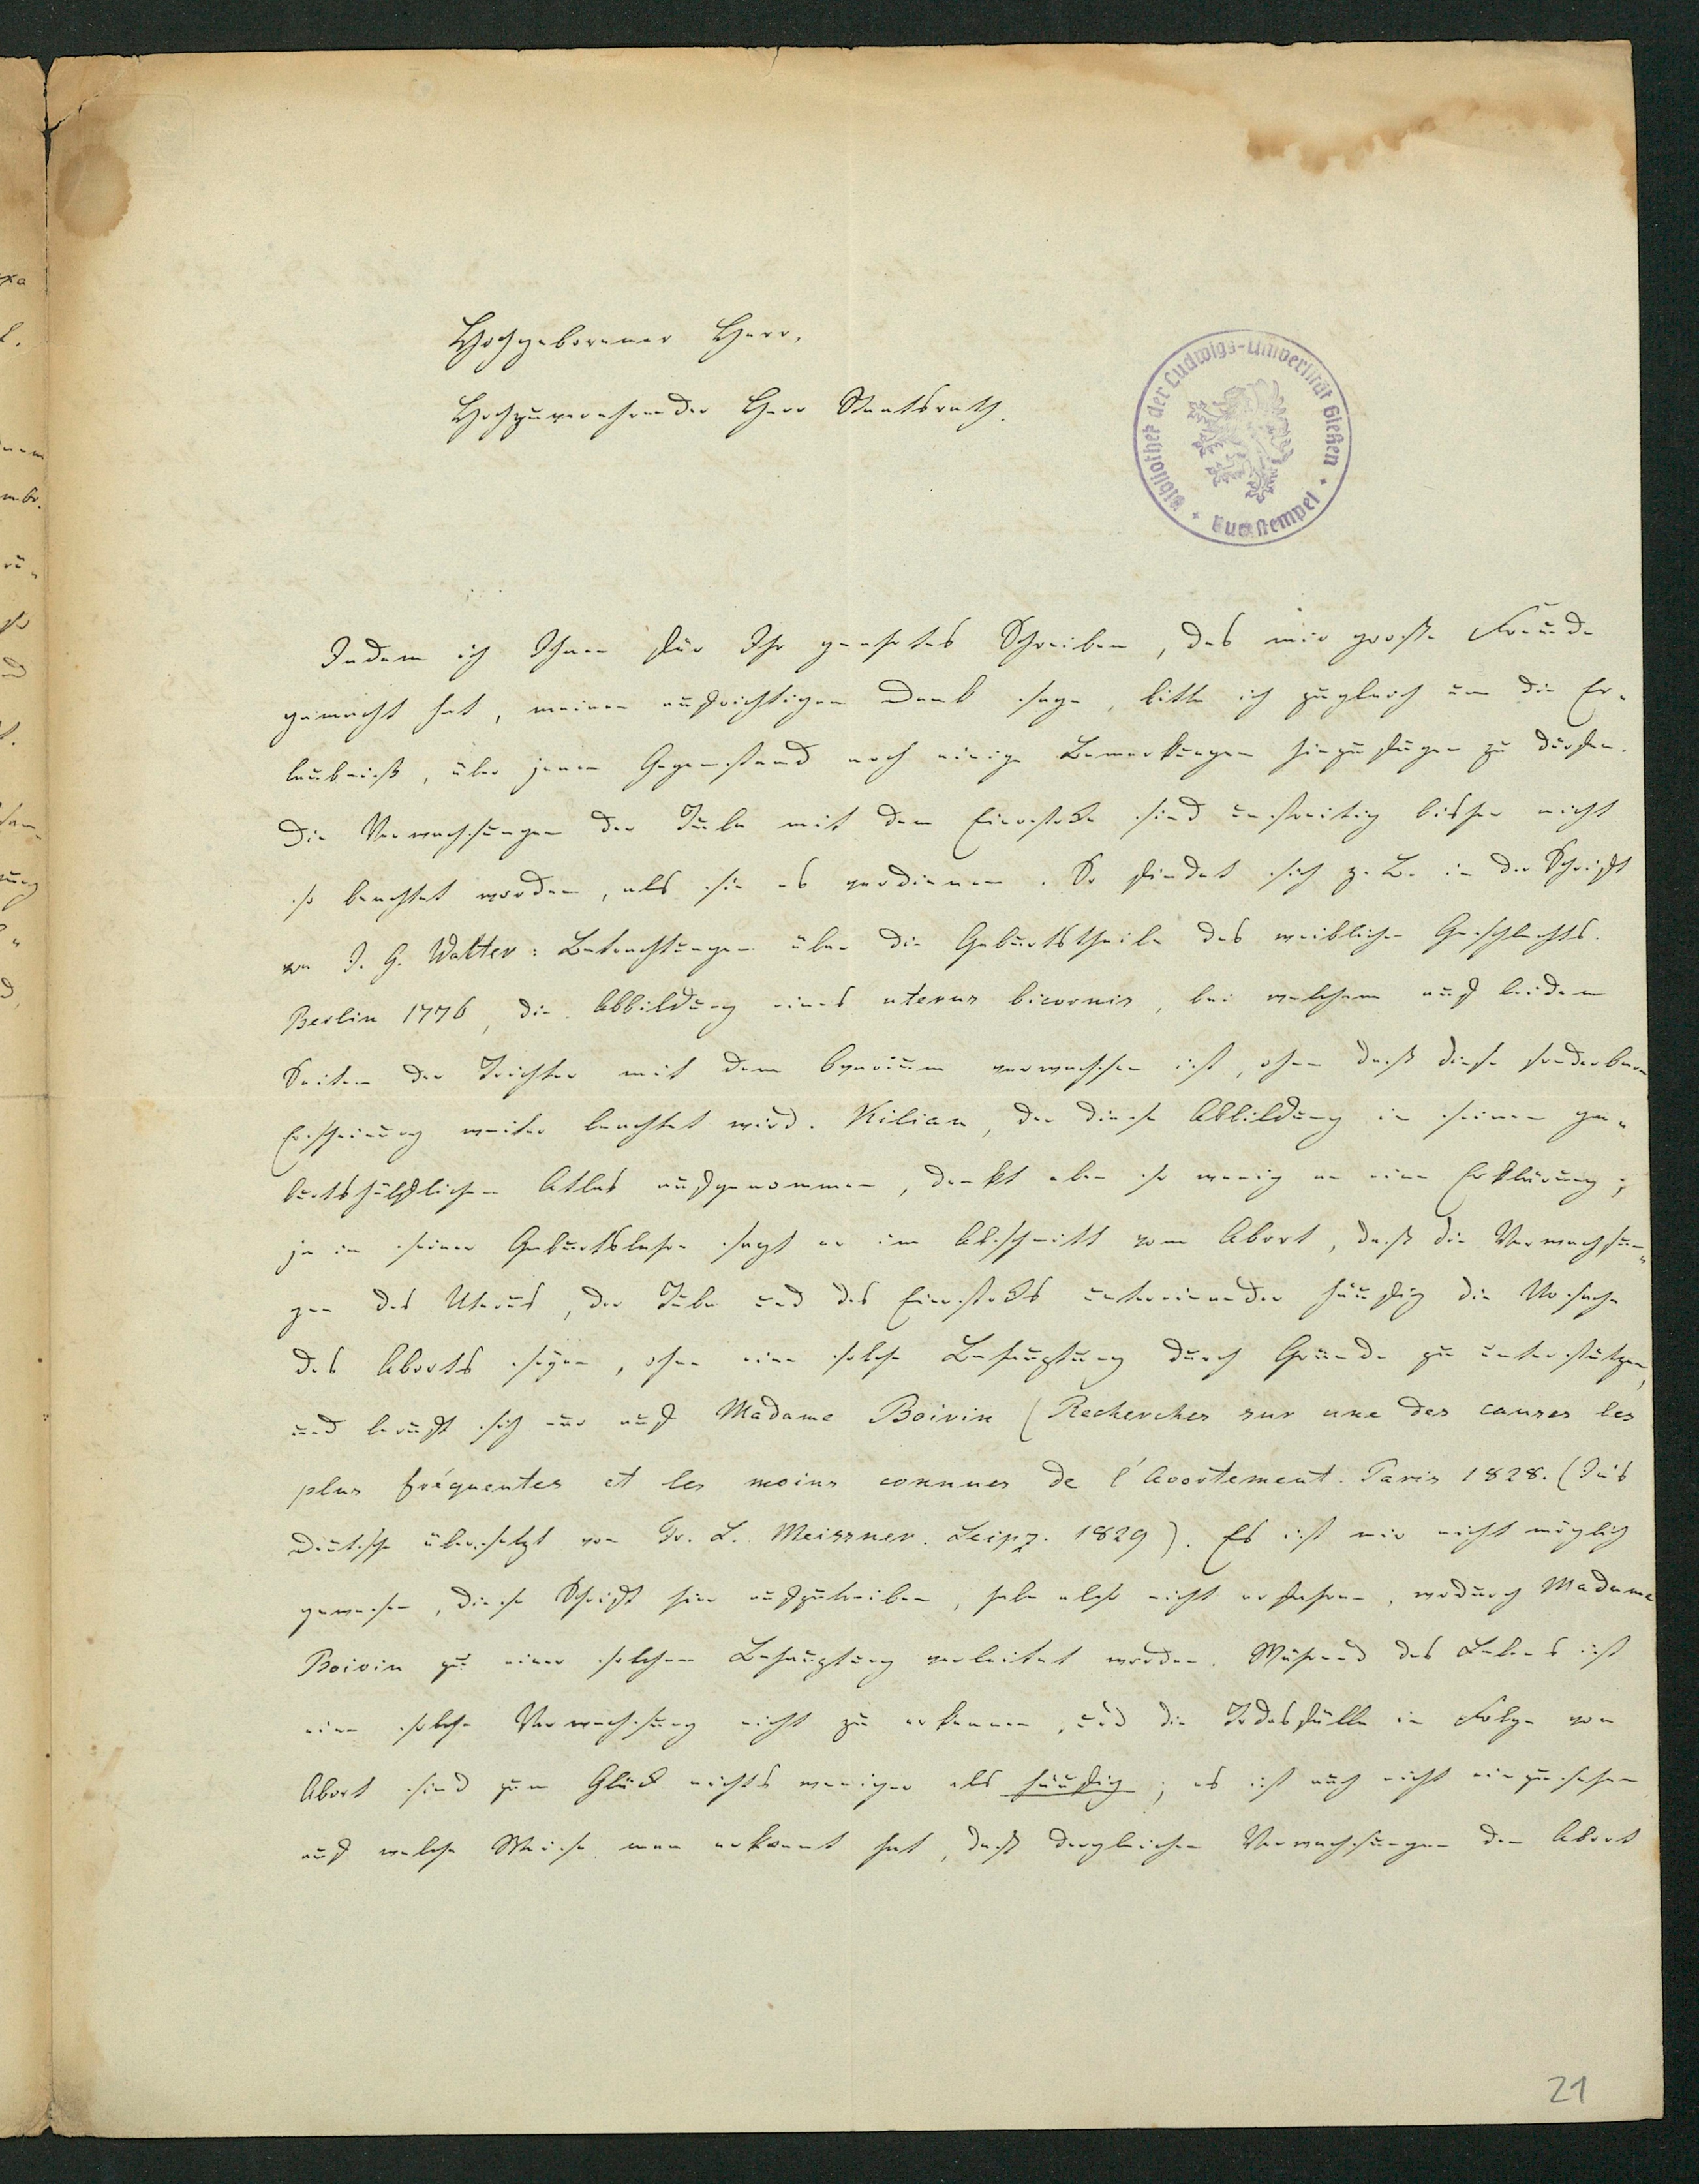 Hochgeborener Herr,
Hochzuverehrender Herr Staatsrath.
Bibliothek der Ludwigs-Universität Gießen
Indem ich Ihnen für Ihr geehrtes Schreiben, das mir große Freude
gemacht hat, meinen aufrichtigen Dank sage, bitte ich zugleich um die Er-
laubniß, über jenen Gegenstand noch einige Bemerkungen hinzufügen zu dürfen.
Die Verwachsungen der Tube mit dem Eierstocke sind unstreitig bisher nicht
so beachtet worden, als sie es verdienen. So findet sich z. B. in der Schrift
von J. G. Walter: Betrachtungen über die Geburtstheile des weiblichen Geschlechts.
Berlin 1776, die Abbildung eines uterus bicornis, bei welchem auf beiden
Seiten der Trichter mit dem Ovarium verwachsen ist, ohne daß diese sonderbare
Erscheinung weiter beachtet wird. Kilian, der diese Abbildung in seinen ge-
burtshülflichen Atlas aufgenommen, denkt eben so wenig an eine Erklärung;
ja in seiner Geburtslehre sagt er im Abschnitt vom Abort, daß die Verwachsun-
gen des Uterus, der Tube und des Eierstocks untereinander häufig die Ursache
des Aborts seyen, ohne eine solche Behauptung durch Gründe zu unterstützen,
und beruft sich nur auf Madame Boivin (Recherches sur une des causes les
plus fréquentes et les moins connues de l'Avortement. Paris 1828. (Ins
Deutsche übersetzt von Fr. L. Meissner. Leipz. 1829). Es ist mir nicht möglich
gewesen, diese Schrift hier aufzutreiben, habe also nicht erfahren, wodurch Madame
Boivin zu einer solchen Behauptung verleitet worden. Während des Lebens ist
eine solche Verwachsung nicht zu erkennen, und die Todesfälle in Folge von
Abort sind zum Glück nichts weniger als häufig; es ist auch nicht einzusehen
auf welche Weise man erkannt hat, daß dergleichen Verwachsungen den Abort
21